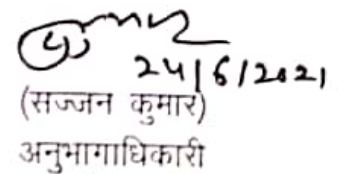 24/6/2021
(सज्जन कुमार)
अनुभागाधिकारी